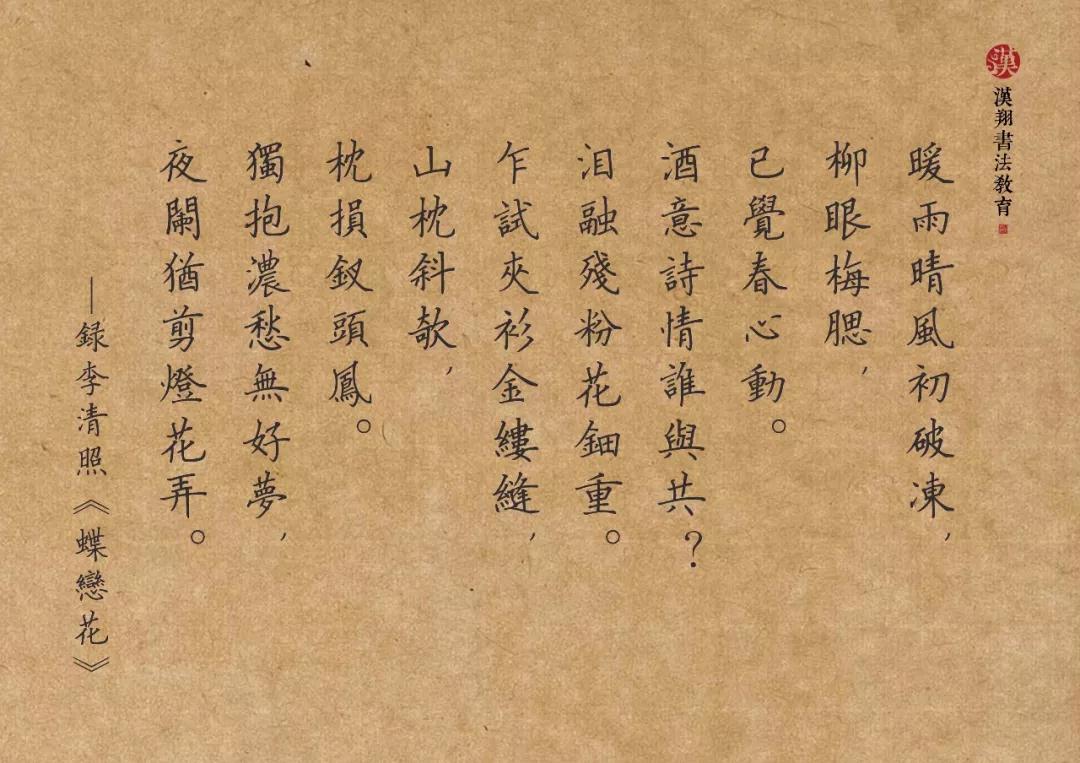 漢
漢翔書法教育
暖雨晴風初破凍，
柳眼梅腮，
已覺春心動。
酒意詩情誰與共？
泪融殘粉花鈿重。
乍試夾衫金縷縫，
山枕斜欹，
枕損釵頭鳳。
獨抱濃愁無好夢，
夜闌猶剪燈花弄。
—録李清照《蝶戀花》